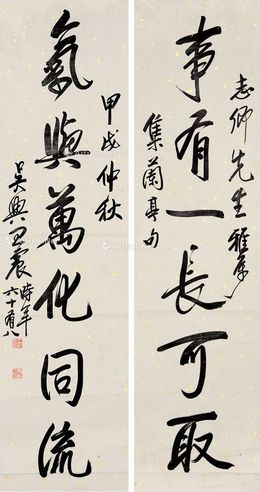 志卿先生雅属
事有一長可取
集蘭亭句
甲戌仲秋
氣與萬化同流
吴興王震時年
六十有八